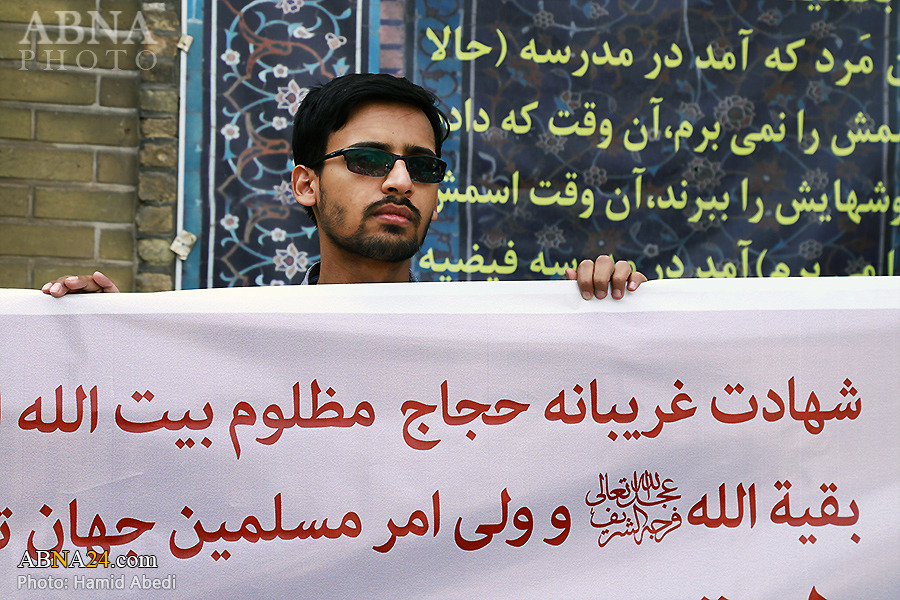 ABNA
PHOTO
مَرد که آمد در مدرسه (حالا
سمش را نمی برم،آن وقت که داد
وشهایش را ببرند،آن وقت اسمش
می برم)آمد در مدرسه فیضیه
شهادت غریبانه حجاج مظلوم بیت الله
بقیة الله عجل الله تعالی فرجه الشریف و ولی امر مسلمین جهان
ABNA24.com
Photo: Hamid Abedi